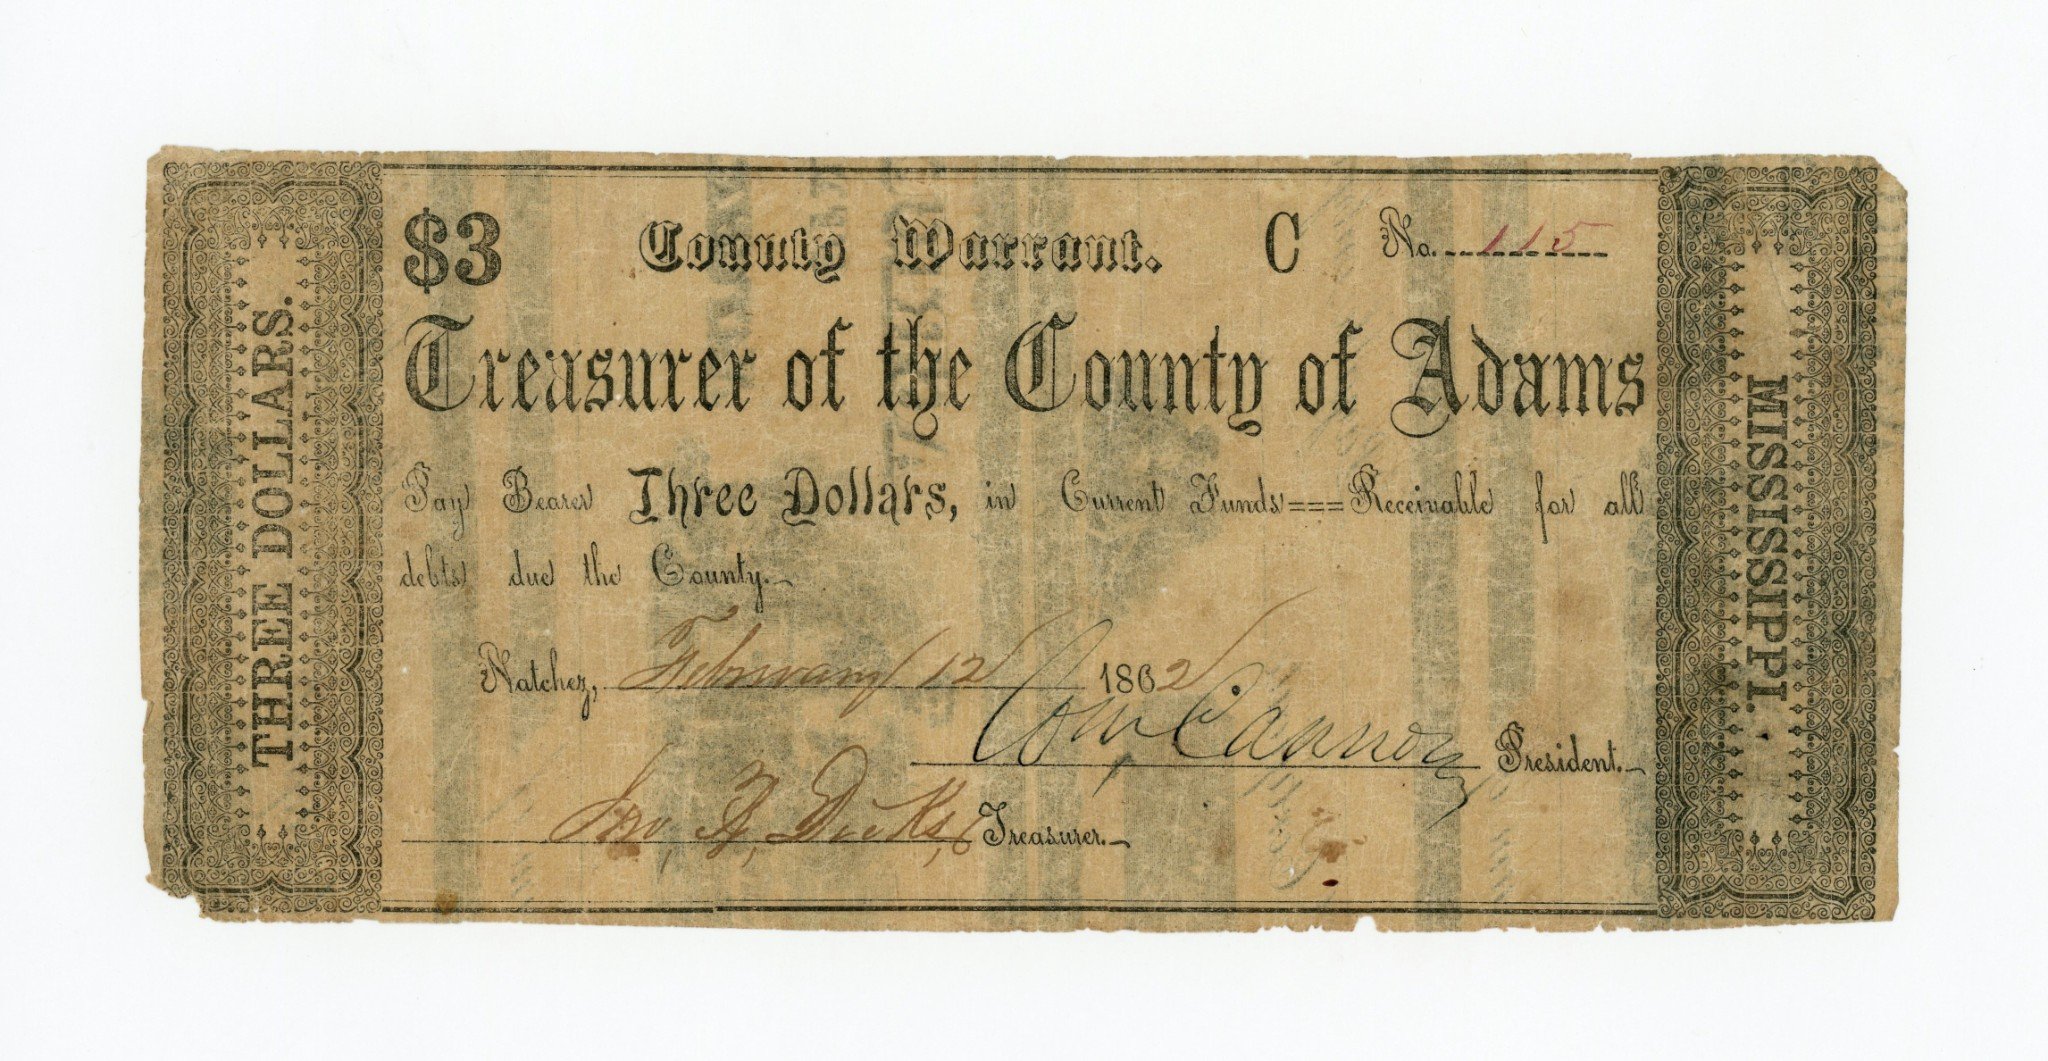 THREE DOLLARS.
$3 County Warrant. C No. 115
Treasurer of the County of Adams
Pay Bearer Three Dollars, in Current Funds===Receivable for all
debts due the County.
Natchez, February 12 1862
Cannon President.
Treasurer.
MISSISSIPPI.